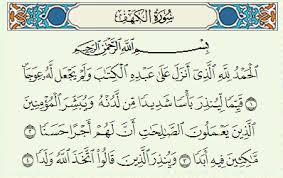 سُورَةُ الْكَهْفِ
بِسْمِ اللَّهِ الرَّحْمَٰنِ الرَّحِيمِ
الْحَمْدُ لِلَّهِ الَّذِي أَنزَلَ عَلَىٰ عَبْدِهِ الْكِتَٰبَ وَلَمْ يَجْعَل لَّهُ عِوَجَا
۝١ قَيِّمًا لِّيُنذِرَ بَأْسًا شَدِيدًا مِّن لَّدُنْهُ وَيُبَشِّرَ الْمُؤْمِنِينَ
الَّذِينَ يَعْمَلُونَ الصَّٰلِحَٰتِ أَنَّ لَهُمْ أَجْرًا حَسَنًا ۝٢
مَّٰكِثِينَ فِيهِ أَبَدًا ۝٣ وَيُنذِرَ الَّذِينَ قَالُوا اتَّخَذَ اللَّهُ وَلَدًا ۝٤